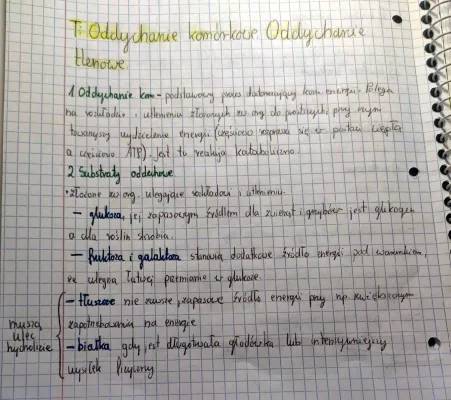 T: Oddychanie komórkowe Oddychanie
tlenowe.
1 Oddychanie kom - podstawowy proces dostarczający kom energii. Polega
na rozkładzie i utlenieniu złożonych zw. org do prostszych, przy czym
towarzyszy wydzielenie energii (częściowo rozprasza się w postaci ciepła
a częściowo ATP). Jest to reakcja kataboliczna.
2 Substraty oddechowe
• złożone zw. org. ulegające rozkładowi i utlenieniu
- glukoza, jej zapasowym źródłem dla zwierząt i grzybów jest glikogen
a dla roślin skrobia.
- fruktoza i galaktoza stanowią dodatkowe źródło energii pod warunkiem,
że ulegną łatwej przemianie w glukozę.
- tłuszcze nie zawsze, zapasowe źródło energii przy np. zwiększonym
zapotrzebowaniu na energię
- białka gdy jest długotrwała głodówka lub intensywniejszy
wysiłek fizyczny
muszą
ulec
hydrolizie